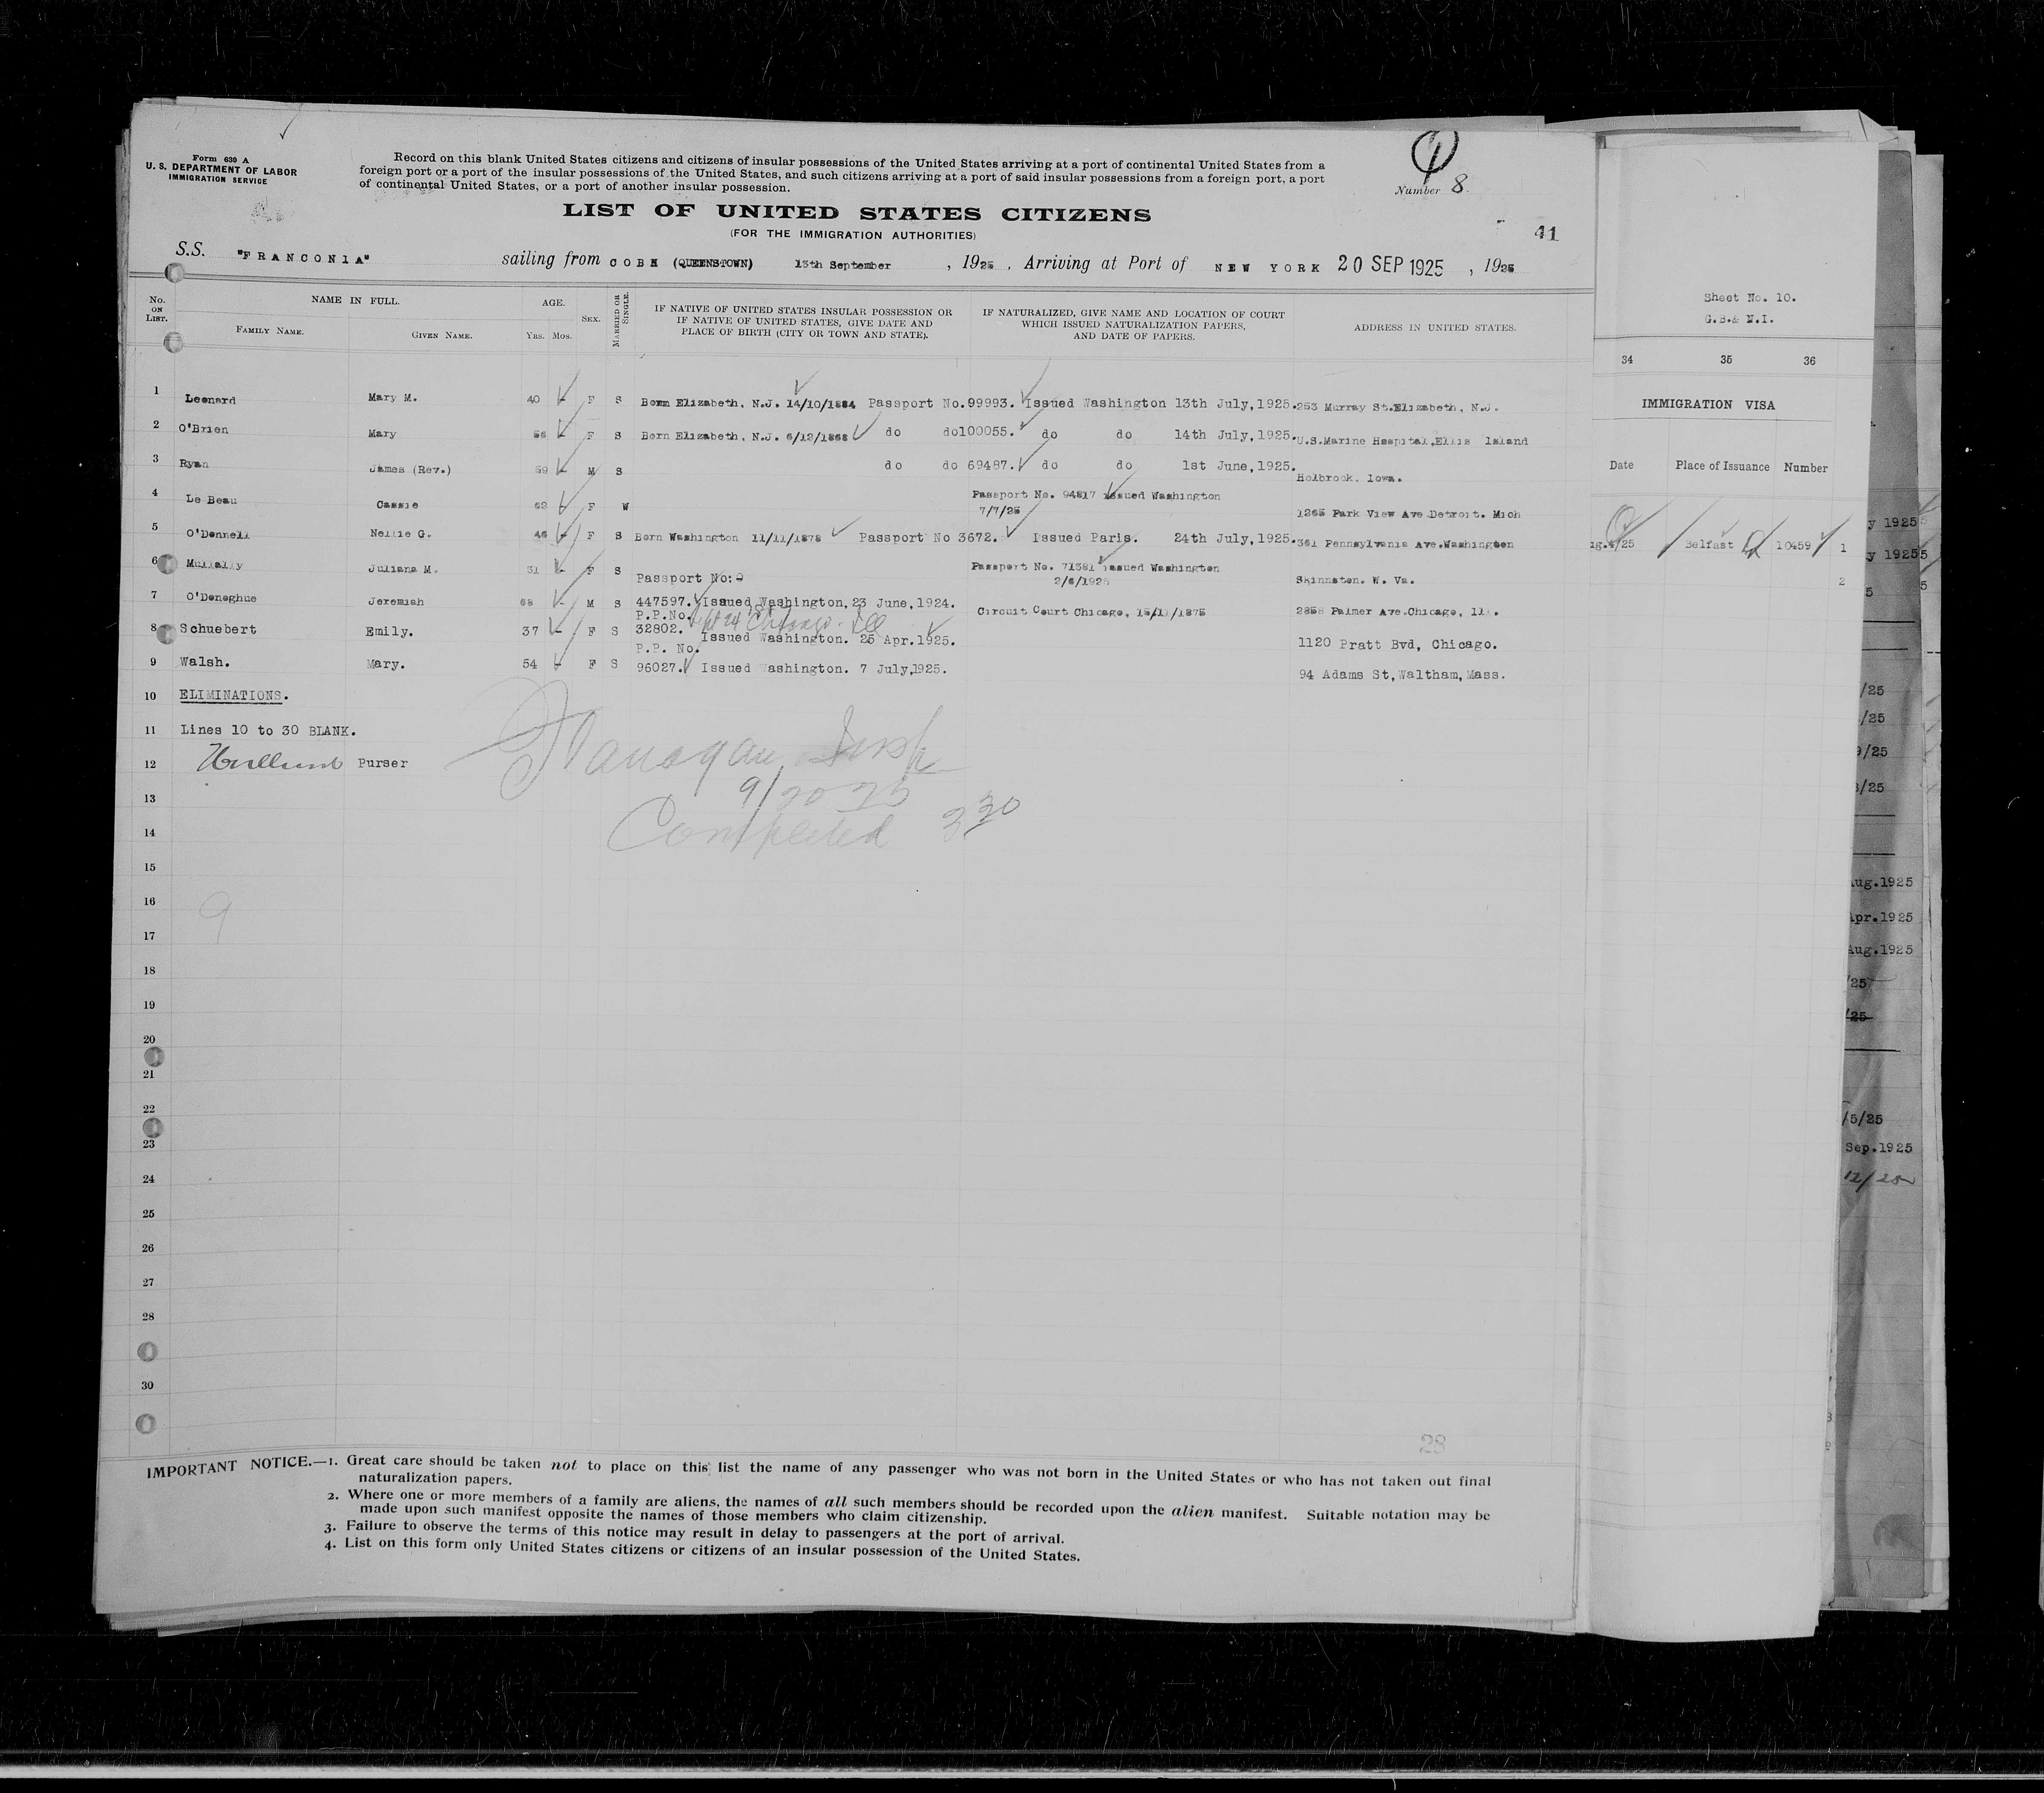 Form 630 A
U. S. DEPARTMENT OF LABOR
IMMIGRATION SERVICE
Record on this blank United States citizens and citizens of insular possessions of the United States arriving at a port of continental United States from a
foreign port or a port of the insular possessions of the United States, and such citizens arriving at a port of said insular possessions from a foreign port, a port
of continental United States, or a port of another insular possession.
Number 8
LIST OF UNITED STATES CITIZENS
(FOR THE IMMIGRATION AUTHORITIES)
41
S.S. "FRANCONIA" sailing from COBH (QUEENSTOWN) 13th September , 1925 , Arriving at Port of NEW YORK 20 SEP 1925 , 1925
No. ON LIST. NAME IN FULL. FAMILY NAME. GIVEN NAME. AGE. YRS. MOS. SEX. MARRIED OR SINGLE. IF NATIVE OF UNITED STATES INSULAR POSSESSION OR IF NATIVE OF UNITED STATES, GIVE DATE AND PLACE OF BIRTH (CITY OR TOWN AND STATE). IF NATURALIZED, GIVE NAME AND LOCATION OF COURT WHICH ISSUED NATURALIZATION PAPERS, AND DATE OF PAPERS. ADDRESS IN UNITED STATES.
1 Leonard Mary M. 40 - F S Born Elizabeth, N.J. 14/10/1884 Passport No.99993. Issued Washington 13th July,1925. 253 Murray St.Elizabeth, N.J.
2 O'Brien Mary 56 - F S Born Elizabeth, N.J. 6/12/1868 do do100055. do do 14th July,1925. U.S.Marine Hospital,Ellis Island
3 Ryan James (Rev.) 59 - M S do do 69487. do do 1st June,1925. Holbrook, Iowa.
4 Le Beau Cassie 62 F W Passport No. 94817 issued Washington
7/7/25 1265 Park View Ave Detroit. Mich
5 O'Donnell Nellie G. 46 - F S Born Washington 11/11/1878 Passport No 3672. Issued Paris. 24th July,1925. 361 Pennsylvania Ave.Washington
6 Mullally Juliana M. 31 - F S Passport No: Passport No. 71381 issued Washington
2/6/1925 Shinnston. W. Va.
7 O'Donoghue Jeremiah 68 - M S 447597. Issued Washington, 23 June, 1924. Circuit Court Chicago, 15/11/1875 2858 Palmer Ave.Chicago, Ill.
P.P.No.
8 Schuebert Emily. 37 - F S 32802. Issued Washington. 25 Apr.1925. 1120 Pratt Bvd, Chicago.
P.P. No.
9 Walsh. Mary. 54 - F S 96027. Issued Washington. 7 July,1925. 94 Adams St,Waltham,Mass.
10 ELIMINATIONS.
11 Lines 10 to 30 BLANK.
12 Purser
Flanagan Insp
9/20 25
13
Completed 3 30
14
15
16
9
17
18
19
20
21
22
23
24
25
26
27
28
30
28
IMPORTANT NOTICE.—1. Great care should be taken not to place on this list the name of any passenger who was not born in the United States or who has not taken out final
naturalization papers.
2. Where one or more members of a family are aliens, the names of all such members should be recorded upon the alien manifest. Suitable notation may be
made upon such manifest opposite the names of those members who claim citizenship.
3. Failure to observe the terms of this notice may result in delay to passengers at the port of arrival.
4. List on this form only United States citizens or citizens of an insular possession of the United States.
Sheet No. 10.
G.B.& N.I.
34 35 36
IMMIGRATION VISA
Date Place of Issuance Number
ug.4/25 Belfast 10459 1
2
y 1925
y 1925
/25
/25
9/25
/25
Aug.1925
Apr.1925
Aug.1925
/25
/25
/5/25
Sep.1925
12/25